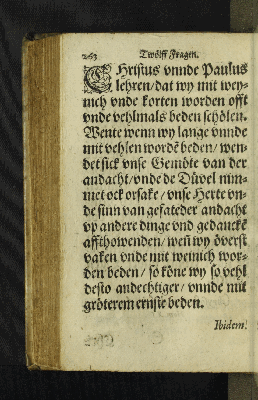 263 Twölff Fragen.
CHristus vnnde Paulus
lehren / dat wy mit wey-
nich vnde korten worden offt
vnde vehlmals beden schölen.
Wente wenn wy lange vnnde
mit vehlen wordē beden / wen-
det sick vnse Gemöte van der
andacht / vnde de Düvel nim-
met ock orsake / vnse Herte vn-
de sinn van gefateder andacht
vp andere dinge vnd gedanckē
affthowenden / weñ wy överst
vaken vnde mit weinich wor-
den beden / so köne wy so vehl
desto andechtiger / vnnde mit
gröterem ernste beden.
Ibidem.